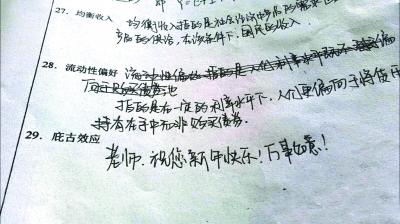 27. 均衡收入 均衡收入指的是社会经济中的需求等于
产品的供给,在该条件下,国民的收入.
28. 流动性偏好
指的是在一定的利率水平下,人们更偏向于将货币
持有在手中而非购买债券.
29. 庇古效应
老师.祝您新年快乐!万事如意!